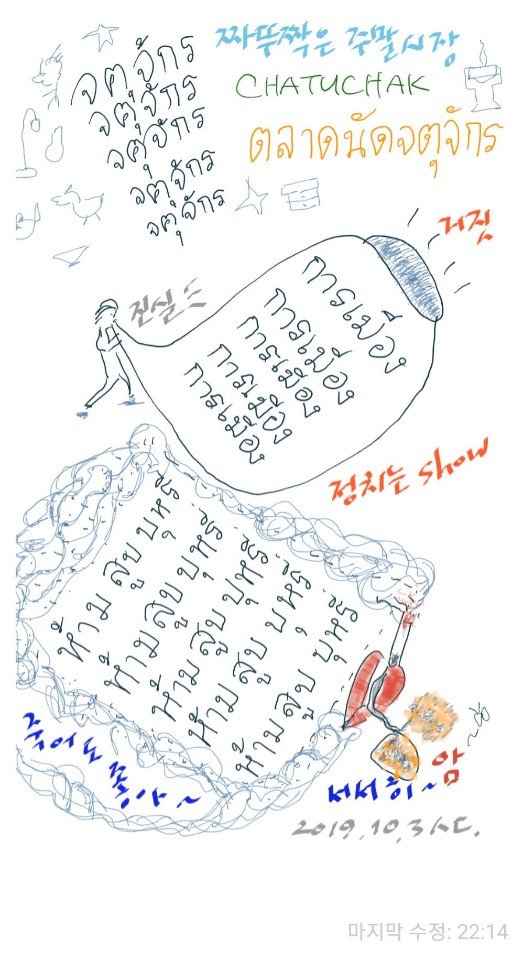 จตุจักร
จตุจักร
จตุจักร
จตุจักร
จตุจักร
짜뚜짝은 주말시장
CHATUCHAK
ตลาดนัดจตุจักร
거짓
진실
การเมือง
การเมือง
การเมือง
การเมือง
การเมือง
정치는 show
ห้าม สูบ บุหรี่
ห้าม สูบ บุหรี่
ห้าม สูบ บุหรี่
ห้าม สูบ บุหรี่
ห้าม สูบ บุหรี่
죽어도 좋아~
서서히~ 암
2019.10.3
마지막 수정: 22:14